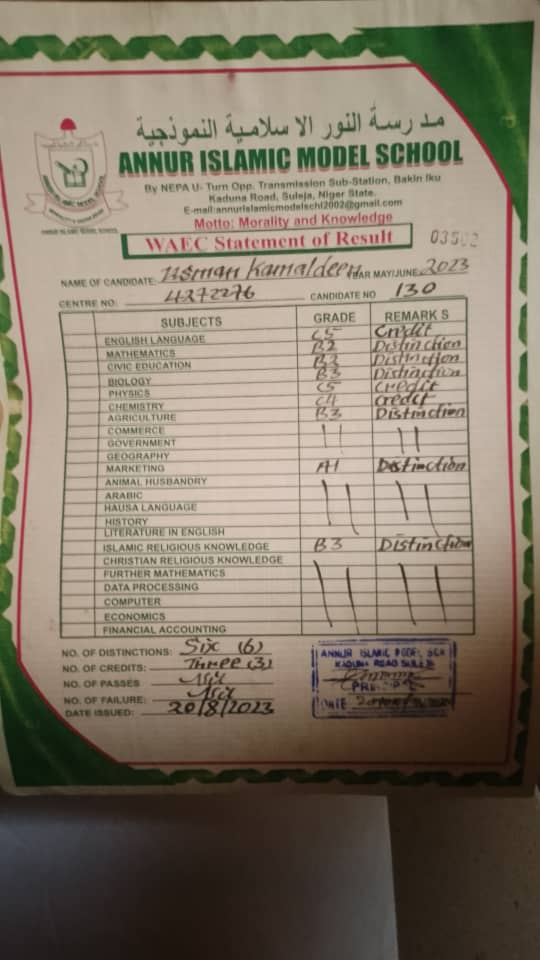 مدرسة النور الاسلامية النموذجية
ANNUR ISLAMIC MODEL SCHOOL
By NEPA U- Turn Opp. Transmission Sub-Station, Bakin Iku
Kaduna Road, Suleja, Niger State.
E-mail:annurislamicmodelschl2002@gmail.com
Motto: Morality and Knowledge
ANNUR ISLAMIC MODEL SCHOOL
WAEC Statement of Result
NAME OF CANDIDATE: Usman Kamaldeen YEAR MAY/JUNE 2023
CENTRE NO: 4272276 CANDIDATE NO 130
SUBJECTS GRADE REMARK S
ENGLISH LANGUAGE C5 Credit
MATHEMATICS B2 Distinction
CIVIC EDUCATION B3 Distinction
BIOLOGY B3 Distinction
PHYSICS C5 Credit
CHEMISTRY C4 Credit
AGRICULTURE B3 Distinction
COMMERCE
GOVERNMENT
GEOGRAPHY
MARKETING A1 Distinction
ANIMAL HUSBANDRY
ARABIC
HAUSA LANGUAGE
HISTORY
LITERATURE IN ENGLISH
ISLAMIC RELIGIOUS KNOWLEDGE B3 Distinction
CHRISTIAN RELIGIOUS KNOWLEDGE
FURTHER MATHEMATICS
DATA PROCESSING
COMPUTER
ECONOMICS
FINANCIAL ACCOUNTING
NO. OF DISTINCTIONS: Six (6)
NO. OF CREDITS: Three (3)
NO. OF PASSES Nil
NO. OF FAILURE: Nil
DATE ISSUED: 20/8/2023
ANNUR ISLAMIC MODEL SCH
KADUNA ROAD SULEJA
PRINCIPAL
DATE